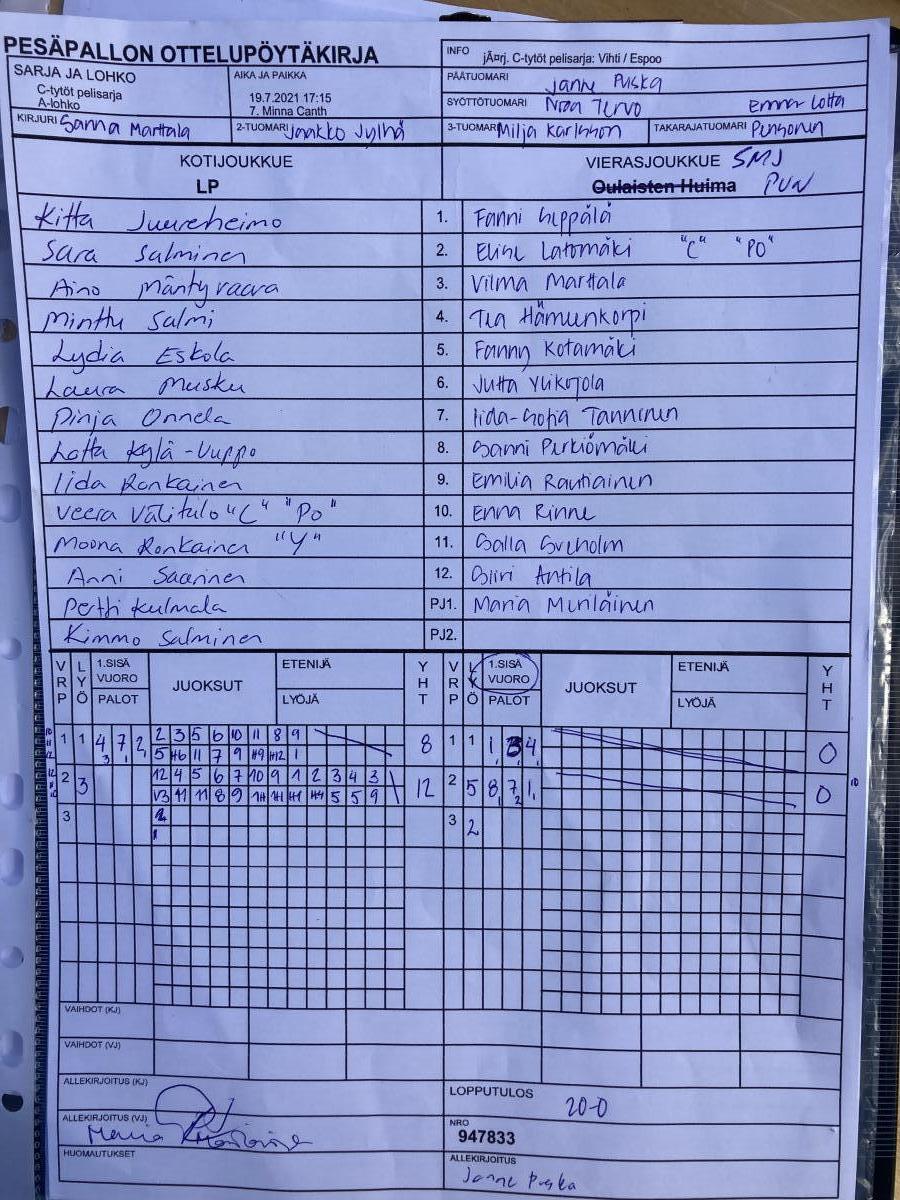 PESÄPALLON OTTELUPÖYTÄKIRJA
INFO
jÃ¤rj. C-tytöt pelisarja: Vihti / Espoo
SARJA JA LOHKO
C-tytöt pelisarja
A-lohko
AIKA JA PAIKKA
19.7.2021 17:15
7. Minna Canth
PÄÄTUOMARI Janne Puska
SYÖTTÖTUOMARI Noa Tervo
KIRJURI Sanna Marttala
2-TUOMARI Jaakko Jylhä
3-TUOMARI Milja Karlsson
TAKARAJATUOMARI Emma-Lotta Penkonen
KOTIJOUKKUE
LP
VIERASJOUKKUE SMJ
Oulaisten Huima PUN
Kitta Juureheimo 1. Fanni Seppälä
Sara Salminen 2. Eline Latomäki "C" "PO"
Aino Mäntyvaara 3. Vilma Marttala
Minttu Salmi 4. Tea Hämeenkorpi
Lydia Eskola 5. Fanny Kotamäki
Laura Musku 6. Jutta Ylikojola
Pinja Onnela 7. Iida-Sofia Tanninen
Lotta Kylä-Vuppo 8. Sanni Perkiömäki
Iida Ronkainen 9. Emilia Rautiainen
Veera Välitalo "C" "Po" 10. Enna Rinne
Moona Ronkainen "Y" 11. Salla Sveholm
Anni Saarinen 12. Siiri Antila
Pertti Kulmala PJ1. Maria Meriläinen
Kimmo Salminen PJ2.
VRP LYÖ 1.SISÄ VUORO PALOT JUOKSUT ETENIJÄ LYÖJÄ YHT VRP LYÖ 1.SISÄ VUORO PALOT JUOKSUT ETENIJÄ LYÖJÄ YHT
1 1 4 7 2 2 3 5 6 10 11 8 9 8 1 1 1 3 4 0
5 H6 11 7 9 H9 H12 1
2 3 12 4 5 6 7 10 9 1 2 3 4 3 12 2 5 8 7 1 0
V3 11 11 8 9 1H H1 H1 H4 5 5 9
3 3 2
VAIHDOT (KJ)
VAIHDOT (VJ)
ALLEKIRJOITUS (KJ)
LOPPUTULOS
20-0
ALLEKIRJOITUS (VJ)
Maria Meriläinen
NRO
947833
HUOMAUTUKSET
ALLEKIRJOITUS
Janne Puska